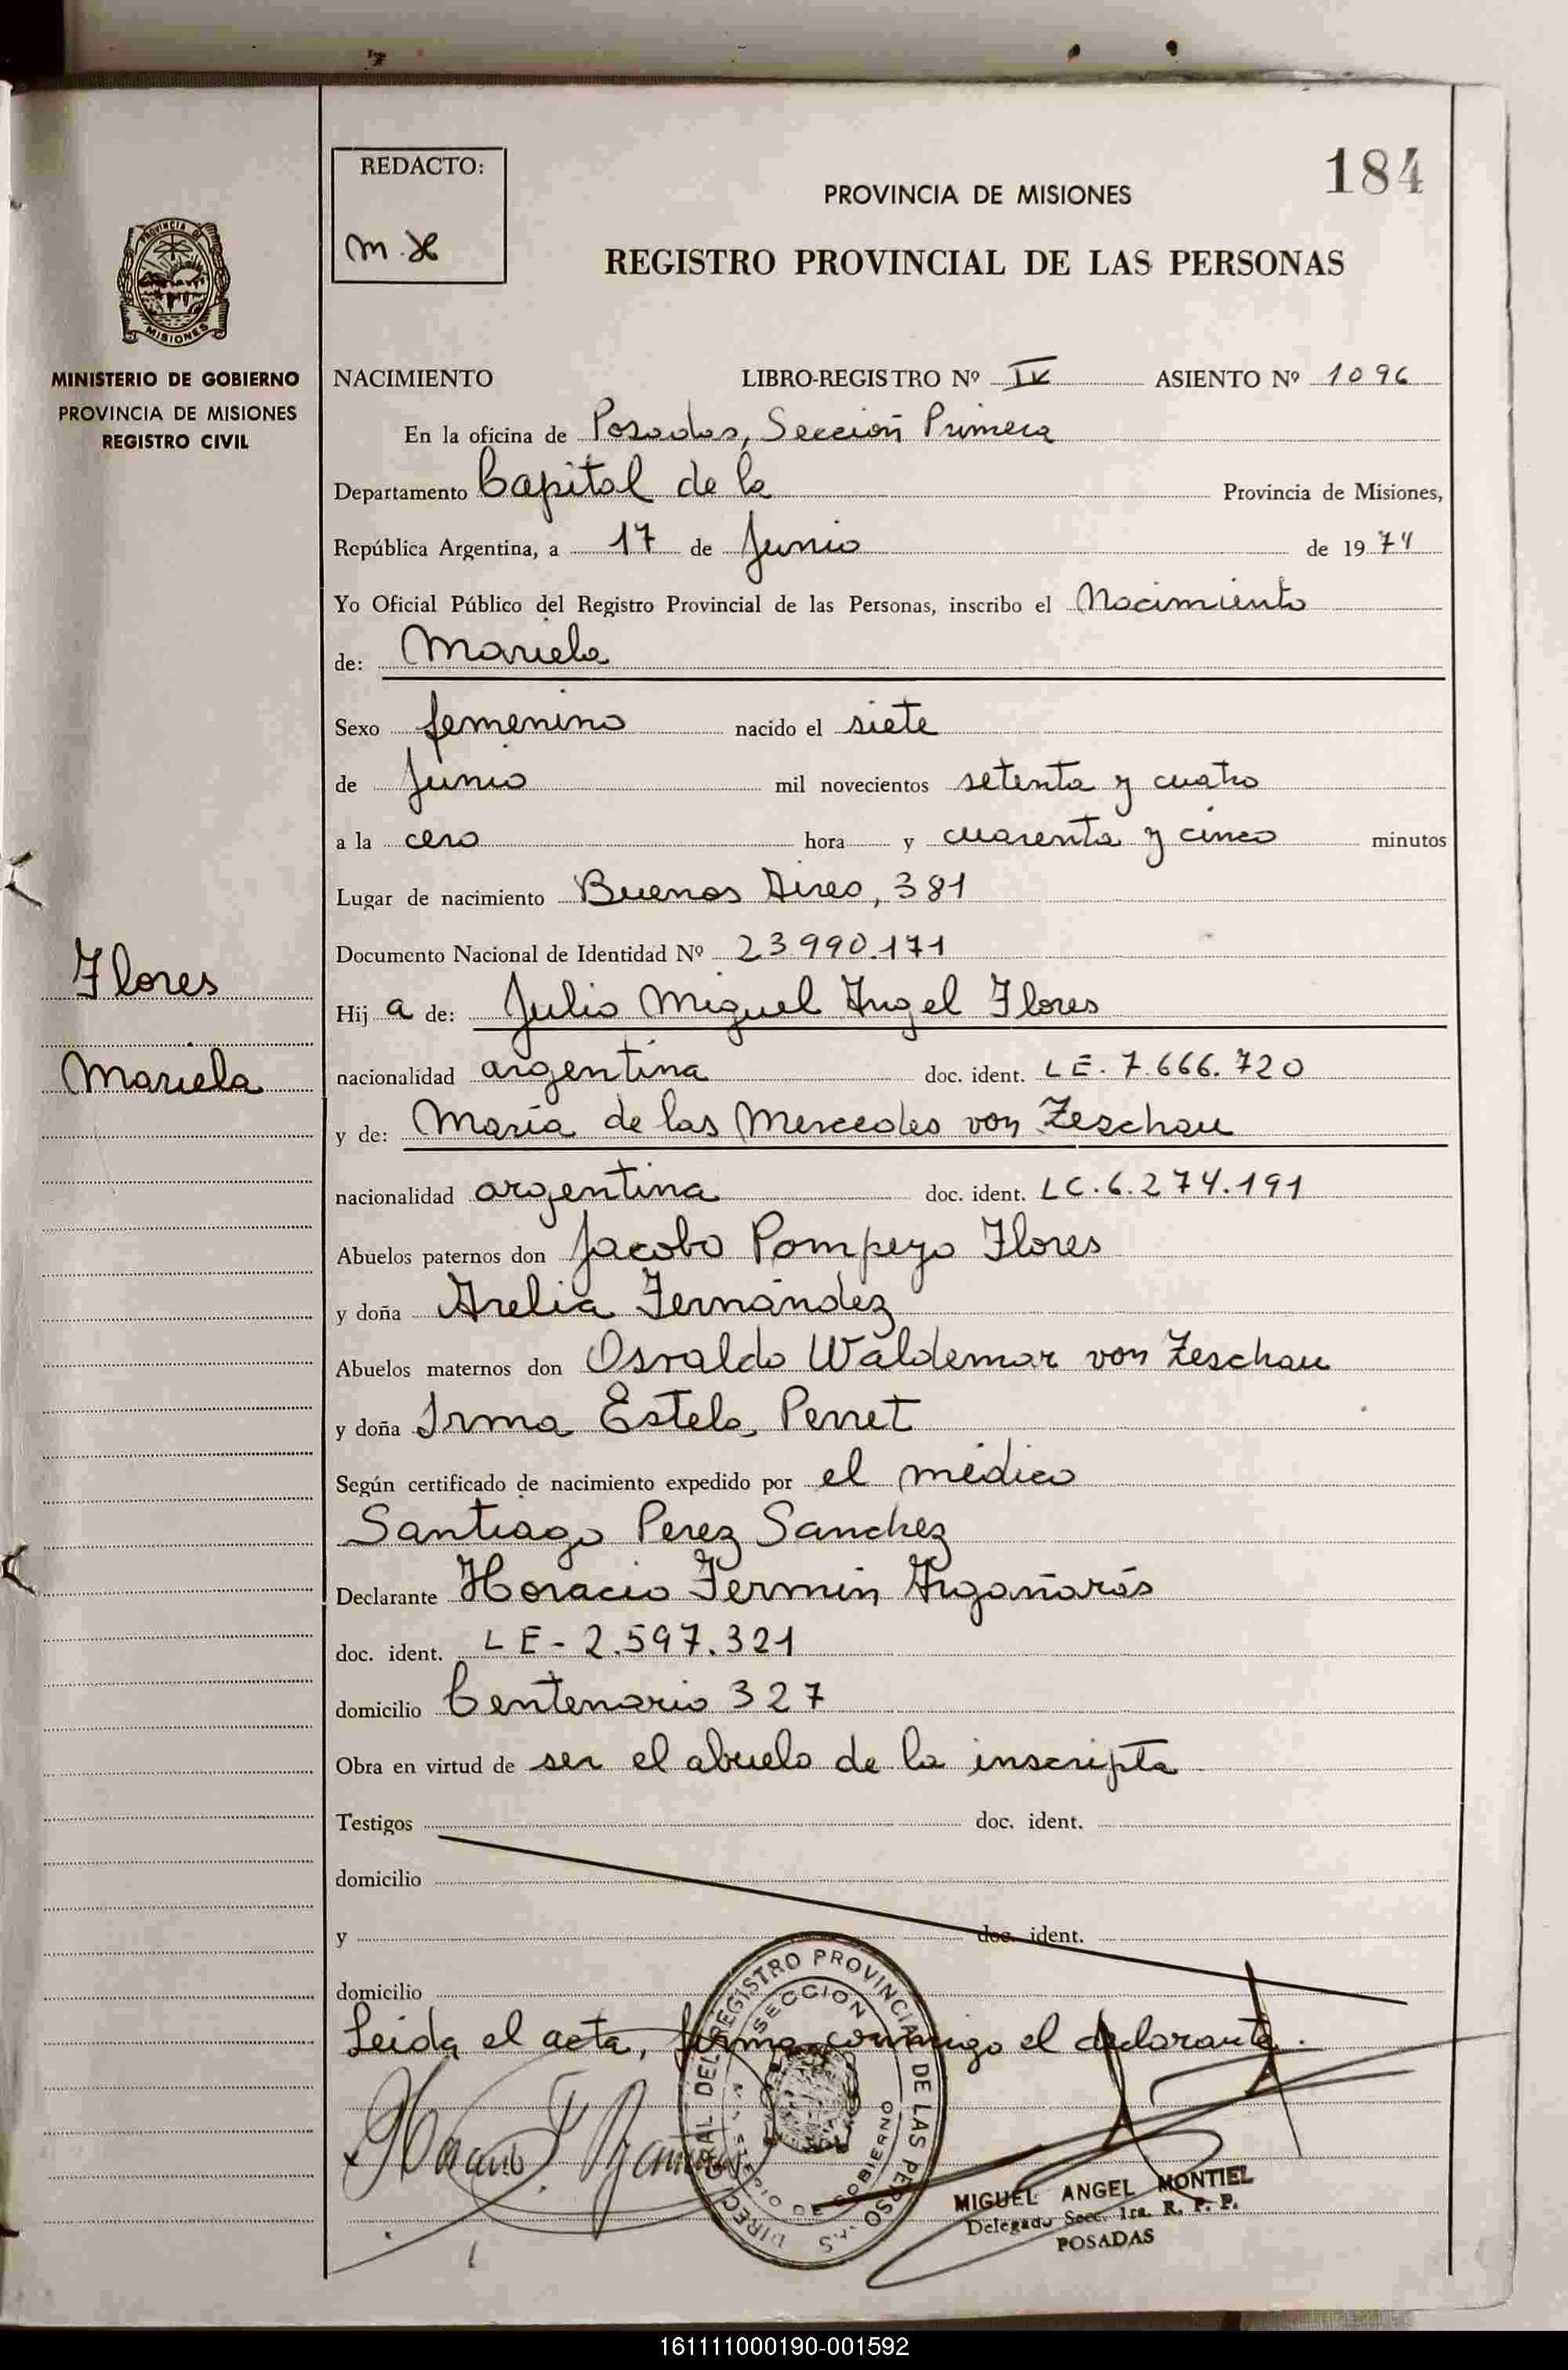 184
REDACTO:
PROVINCIA DE MISIONES
REGISTRO PROVINCIAL DE LAS PERSONAS
PROVINCIA DE
MISIONES
MINISTERIO DE GOBIERNO
PROVINCIA DE MISIONES
REGISTRO CIVIL
NACIMIENTO LIBRO-REGISTRO Nº IV ASIENTO Nº 1096
En la oficina de Posadas, Sección Primera
Departamento Capital de la Provincia de Misiones,
República Argentina, a 17 de Junio de 1974
Yo Oficial Público del Registro Provincial de las Personas, inscribo el Nacimiento
de: Mariela
Sexo femenino nacido el siete
de Junio mil novecientos setenta y cuatro
a la cero hora y cuarenta y cinco minutos
Lugar de nacimiento Buenos Aires, 381
Documento Nacional de Identidad Nº 23.990.171
Flores
Mariela
Hij a de: Julio Miguel Angel Flores
nacionalidad argentina doc. ident. LE. 7.666.720
y de: María de las Mercedes von Zeschau
nacionalidad argentina doc. ident. LC. 6.274.191
Abuelos paternos don Jacobo Pompeyo Flores
y doña Arelia Fernández
Abuelos maternos don Osvaldo Waldemar von Zeschau
y doña Irma Estela Perret
Según certificado de nacimiento expedido por el médico
Santiago Perez Sanchez
Declarante Horacio Fermin Argañarás
doc. ident. LE - 2.597.321
domicilio Centenario 327
Obra en virtud de ser el abuelo de la inscripta
Testigos doc. ident.
domicilio
y doc. ident.
domicilio
Leida el acta, firma conmigo el declarante.
REGISTRO PROVINCIAL DE LAS
SECCION
MIGUEL ANGEL MONTIEL
Delegado Secc. 1ra. R. P. P.
POSADAS
161111000190-001592